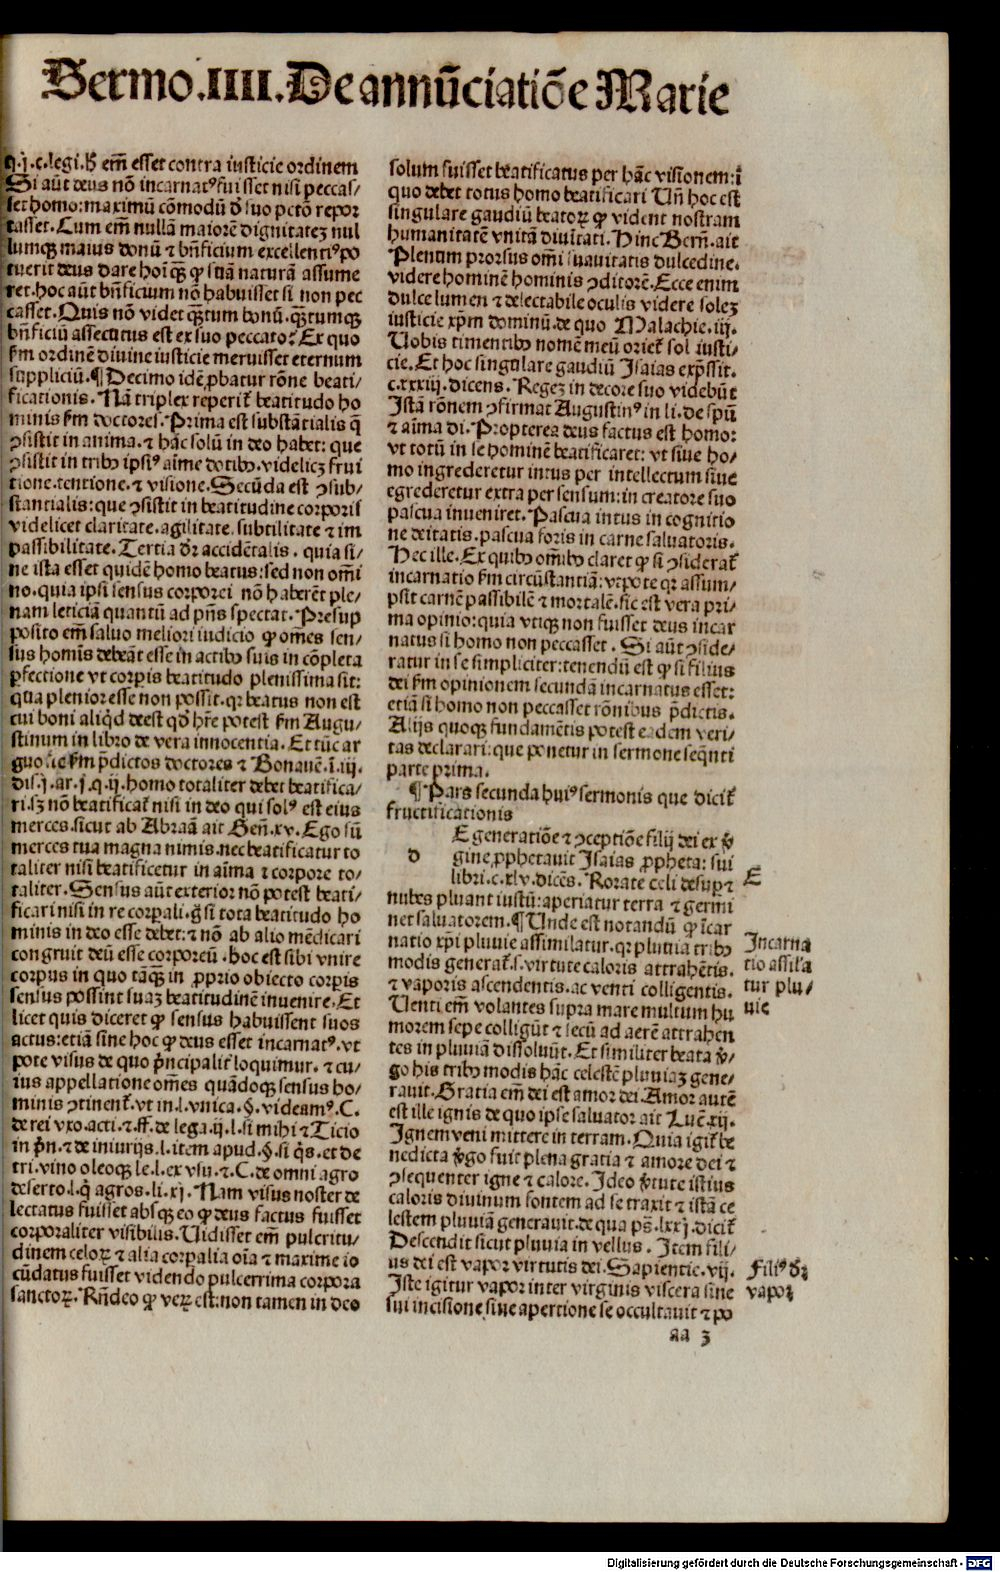 Sermo.IIII.De annũciatiõe Marie
q.j.c.legi.h̾ em̃ esset contra iusticie ordinem
Si aũt deus nõ incarnatꝰ fuisset nisi peccas/
set homo: maximũ cõmodũ ď suo pctõ repor
tasset. Cum em̃ nullã maiorẽ dignitateꝫ nul
lumqꝫ maius donũ ⁊ bñficium excellentiꝰ po
tuerit deus dare hoĩ qꝫ̃ ꝙ suã naturã assume
ret. hoc aũt bñficium nõ habuisset si non pec
casset. Quis nõ videt qꝫ̃tum bonũ. qꝫ̃tumqꝫ
bñficiũ assecutus est ex suo peccato? Ex quo
ẜm ordinẽ diuine iusticie meruisset eternum
suppliciũ. ¶ Decimo idẽ ꝓbatur rõne beati/
ficationis. Nã triplex reperit᷑ beatitudo ho
minis ẜm doctores. Prima est substãtialis q̃
ꝯsistit in anima. ⁊ hãc solũ in deo habet: que
ꝯsistit in tribꝰ ipsiꝰ aĩme dotibꝰ. videlicꝫ frui
tione. tentione. ⁊ visione. Secũda est ꝯsub/
stantialis: que ꝯsistit in beatitudine corporis
videlicet claritate. agilitate. subtilitate ⁊ im
passibilitate. Tertia dr̃ accidẽtalis. quia si/
ne ista esset quidẽ homo beatus: sed non om̃i
no. quia ipsi sensus corporei nõ haberẽt ple/
nam leticiã quantũ ad pñs spectat. Presup
posito em̃ saluo meliori iudicio ꝙ om̃es sen/
sus homĩs debeãt esse in actibꝰ suis in cõpleta
ꝑfectione vt corpis beatitudo plenissima sit:
qua plenior esse non possit. qꝛ beatus non est
cui boni aliqd̾ deest qď hr̃e potest ẜm Augu/
stinum in libro de vera innocentia. Et tũc ar
guo sic ẜm p̃dictos doctores ⁊ Bonauẽ. ĩ. iij.
dis. j. ar. j. q. ij. homo totaliter debet beatifica/
ri. sꝫ nõ beatificat᷑ nisi in deo qui solꝰ est eius
merces. sicut ab Abraã ait Geñ. xv. Ego sũ
merces tua magna nimis. nec beatificatur to
taliter nisi beatificetur in aĩma ⁊ corpore to/
taliter. Sensus aũt exterior nõ potest beati/
ficari nisi in re corpali. g̊ si tota beatitudo ho
minis in deo esse debet: ⁊ nõ ab alio mẽdicari
congruit deũ esse corporeũ. hoc est sibi vnire
corpus in quo tãqꝫ̃ in ꝓprio obiecto corpis
sensus possint suaꝫ beatitudinẽ inuenire. Et
licet quis diceret ꝙ sensus habuissent suos
actus: etiã sine hoc ꝙ deus esset incarnatꝰ. vt
pote visus de quo p̃ncipalit᷑ loquimur. ⁊ cu/
ius appellatione om̃es quãdoqꝫ sensus ho/
minis ꝯtinent᷑. vt in. l. vnica. §. videamꝰ. C.
de rei vxo. acti. ⁊. ff. de lega. ij. l. si mihi ⁊ Ticio
in p̃n. ⁊ de iniurijs. l. item apud. §. si q̃s. et de
tri. vino oleoqꝫ le. l. ex vsu. ⁊. C. de omni agro
deserto. l. q̃ agros. li. xj. Nam visus noster de
lectatus fuisset absqꝫ eo ꝙ deus factus fuisset
corporaliter visibilis. Uidisset em̃ pulcritu/
dinem celoꝝ ⁊ alia corpalia oĩa ⁊ maxime io
cũdatus fuisset videndo pulcerrima corpora
sanctoꝝ. Rñdeo ꝙ veꝝ est: non tamen in deo
solum fuisset beatificatus per hãc visionem: ĩ
quo debet totus homo beatificari Uñ hoc est
singulare gaudiũ beatoꝝ ꝙ vident nostram
humanitatẽ vnitã diuĩtati. Hinc Berñ. ait
Plenum prorsus om̃i suauitatis dulcedine.
videre hominẽ hominis ꝯditorẽ. Ecce enim
dulce lumen ⁊ delectabile oculis videre soleꝫ
iusticie xp̃m dominũ. de quo Malachie. iij.
Uobis timentibꝰ nomẽ meũ oriet᷑ sol iusti/
cie. Et hoc singulare gaudiũ Isaias exp̃ssit.
c. xxxiij. dicens. Regeꝫ in decore suo videbũt
Istã rõnem ꝯfirmat Augustinꝰ in li. de spũ
⁊ aĩma di. Propterea deus factus est homo:
vt totũ in se hominẽ beatificaret: vt siue ho/
mo ingrederetur intus per intellectum siue
egrederetur extra per sensum: in creatore suo
pascua inueniret. Pascua intus in cognitio
ne deitatis. pascua foris in carne saluatoris.
Hec ille. Ex quibꝰ om̃ibꝰ claret ꝙ si ꝯsiderat᷑
incarnatio ẜm circũstantiã: vtpote qꝛ assum/
psit carnẽ passibilẽ ⁊ mortalẽ. sic est vera pri/
ma opinio: quia vtiqꝫ non fuisset deus incar
natus si homo non peccasset. Si aũt ꝯside/
ratur in se simpliciter: tenendũ est ꝙ si filius
dei ẜm opinionem secundã incarnatus esset:
etiã si homo non peccasset rõnibus p̃dictis.
Alijs quoqꝫ fundamẽtis potest eadem veri/
tas declarari: que ponetur in sermone seq̃nti
parte prima.
¶ Pars secunda huiꝰ sermonis que dicit᷑
fructificationis
d E generatiõe ⁊ ꝯceptiõe filij dei ex v̾
gine ꝓphetauit Isaias ꝓpheta: sui
libri. c. xlv. dicẽs. Rorate celi desup̱ ⁊
nubes pluant iustũ: aperiatur terra ⁊ germi
net saluatorem. ¶ Unde est notandũ ꝙ ĩcar
natio xp̃i pluuie assimilatur. qꝛ pluuia tribꝰ
modis generat᷑. s. virtute caloris attrahẽtis.
⁊ vaporis ascendentis. ac venti colligentis.
Uenti em̃ volantes supra mare multum hu
morem sepe colligũt ⁊ secũ ad aerẽ attrahen
tes in pluuiã dissoluũt. Et similiter beata v̾/
go his tribꝰ modis hãc celestẽ pluuiaꝫ gene/
rauit. Gratia em̃ dei est amor dei. Amor autẽ
est ille ignis de quo ipse saluator ait Lucẽ. xij.
Ignem veni mittere in terram. Quia igit᷑ be
nedicta v̾go fuit plena gratia ⁊ amore dei ⁊
ꝯsequenter igne ⁊ calore. Ideo v̾tute istius
caloris diuinum fontem ad se traxit ⁊ istã ce
lestem pluuiã generauit. de qua ps̃. lxxj. dicit᷑
Descendit sicut pluuia in vellus. Item fili/
us dei est vapor virtutis dei. Sapientie. vij.
Iste igitur vapor inter virginis viscera sine
sui incisione siue apertione se occultauit ⁊ po
E
Incarna
tio assil̃a
tur plu/
uie
Filiꝰ dr̃
vapoꝛ
aa 3
Digitalisierung gefördert durch die Deutsche Forschungsgemeinschaft - DFG